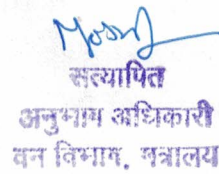 सत्यापित
अनुभाग अधिकारी
वन विभाग, मंत्रालय